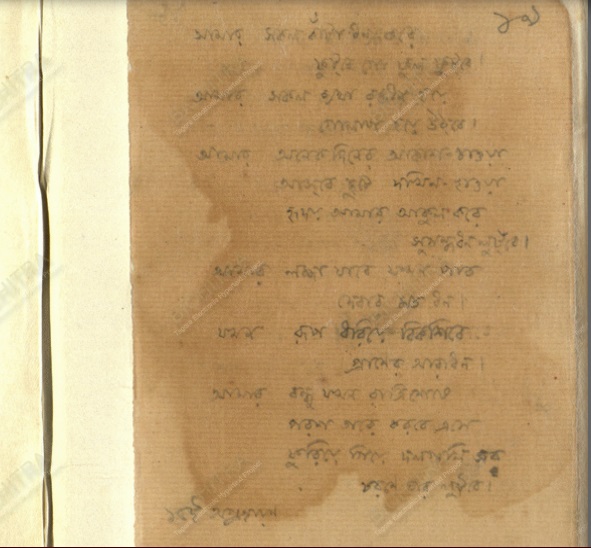 আমার সকল কাঁটা ধন্য করে
ফুটবে গো ফুল ফুটবে।
আমার সকল ব্যথা রঙীন হয়ে
গোলাপ হয়ে উঠবে।
আমার অনেক দিনের আকাশ চাওয়া
আসবে ছুটে দখিন হাওয়া
হৃদয় আমার আকুল করে
সুগন্ধ ধন লুটবে।
আমার লজ্জা যাবে যখন পাব
দেবার মত ধন।
যখন রূপ ধরিয়ে বিকশিবে
প্রাণের আরাধন।
আমার বন্ধু যখন রাত্রিশেষে
পরশ তারে করবে এসে
ফুরিয়ে গিয়ে দলগুলি
চরণে তার লুটবে।